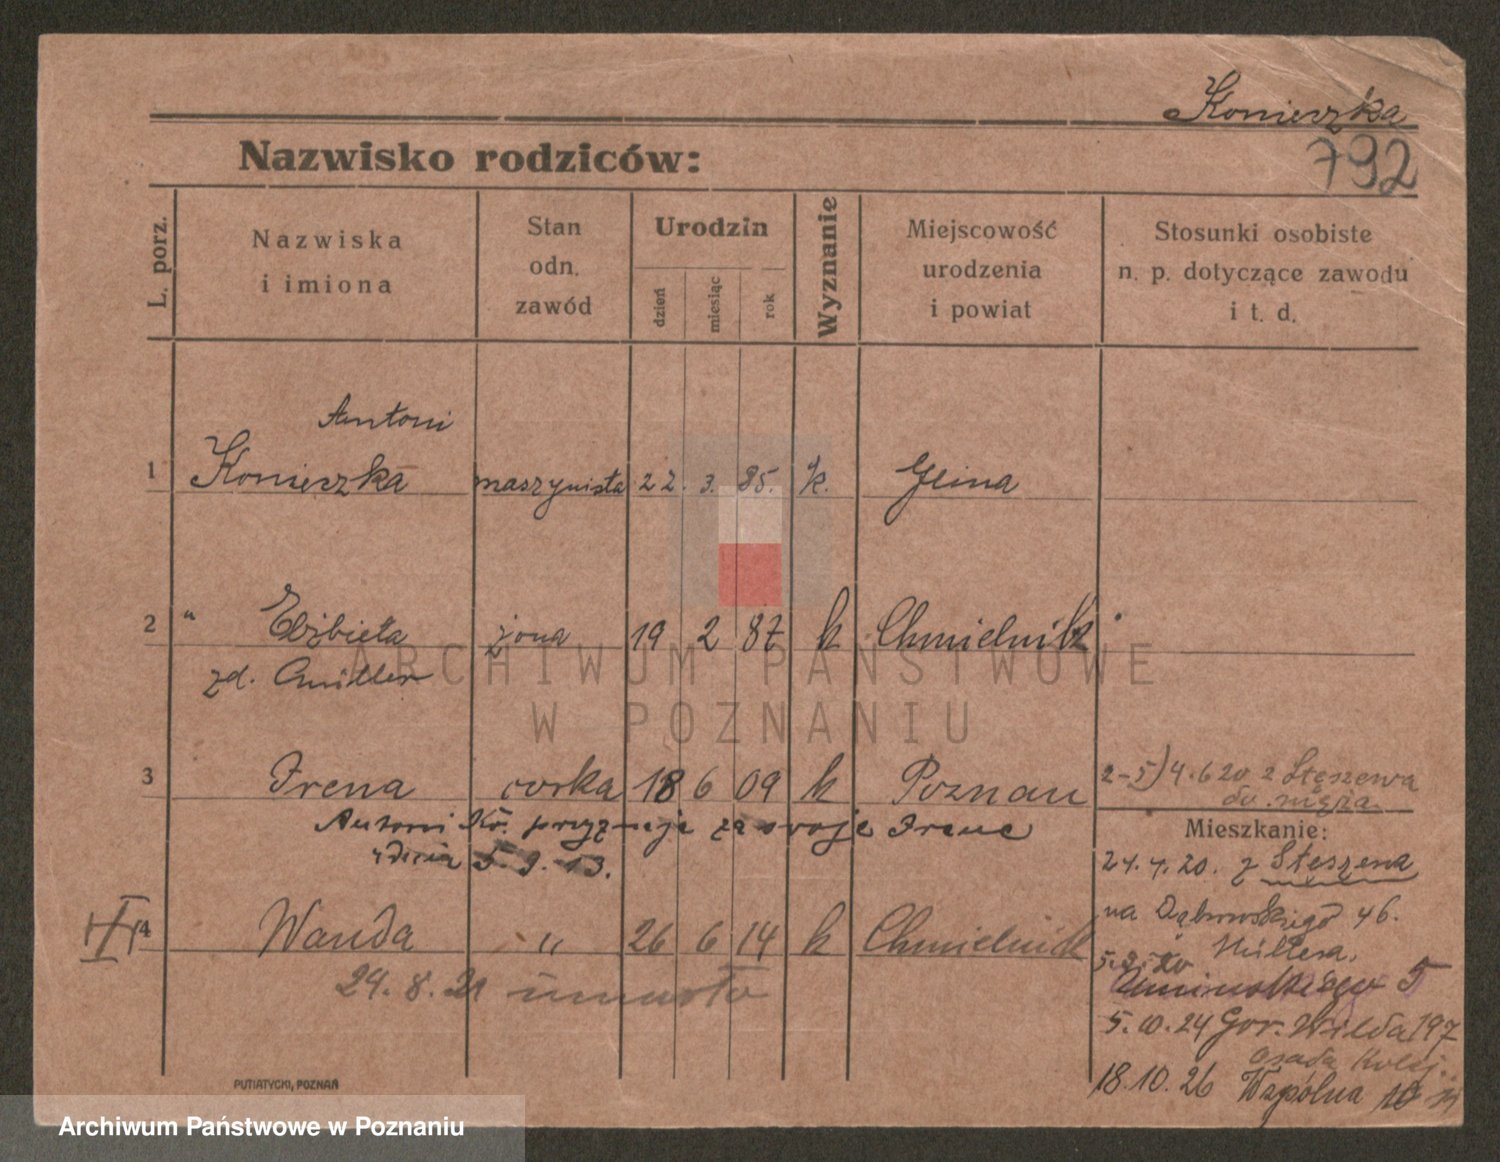 Konieczka
792
Nazwisko rodziców:
L. porz.
Nazwiska
i imiona
Stan
odn.
zawód
Urodzin
dzień
miesiąc
rok
Wyznanie
Miejscowość
urodzenia
i powiat
Stosunki osobiste
n. p. dotyczące zawodu
i t. d.
Antoni
1 Konieczka maszynista 22. 3. 85. k. Glina
2 " Elżbieta żona 19 2 87 k Chmielnik
zd. Müller
ARCHIWUM PAŃSTWOWE
W POZNANIU
3 Irena corka 18 6 09 k Poznan
2-5) 4.6 20 z Stęszewa
do męża
Antoni Ko. przyznaje za swoje Irene
5. 9. 13.
Mieszkanie:
24.4.20. z Stęszewa
na Dąbrowskiego 46.
4 Wanda " 26 6 14 k Chmielnik
Müllera.
29. 8. 21 umarła
5
5.10.24 Gor. Wilda 197
osada Kolej.
18.10.26 Wspólna 10
PUTIATYCKI, POZNAŃ
Archiwum Państwowe w Poznaniu